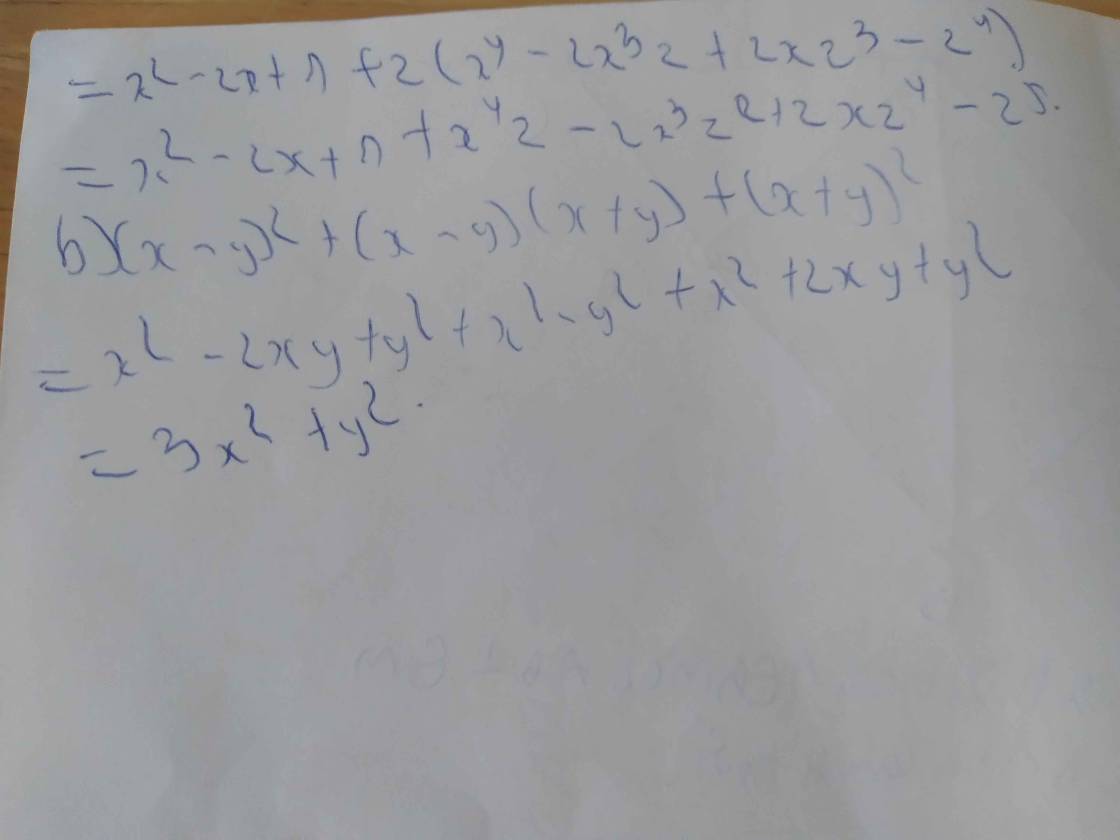 = x² - 2x + 1 + z(x⁴ - 2x³z + 2xz³ - z⁴)
= x² - 2x + 1 + x⁴z - 2x³z² + 2xz⁴ - z⁵.
b) (x - y)² + (x - y)(x + y) + (x + y)²
= x² - 2xy + y² + x² - y² + x² + 2xy + y²
= 3x² + y².